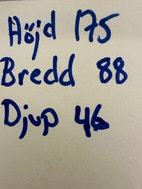 Höjd 175
Bredd 88
Djup 46